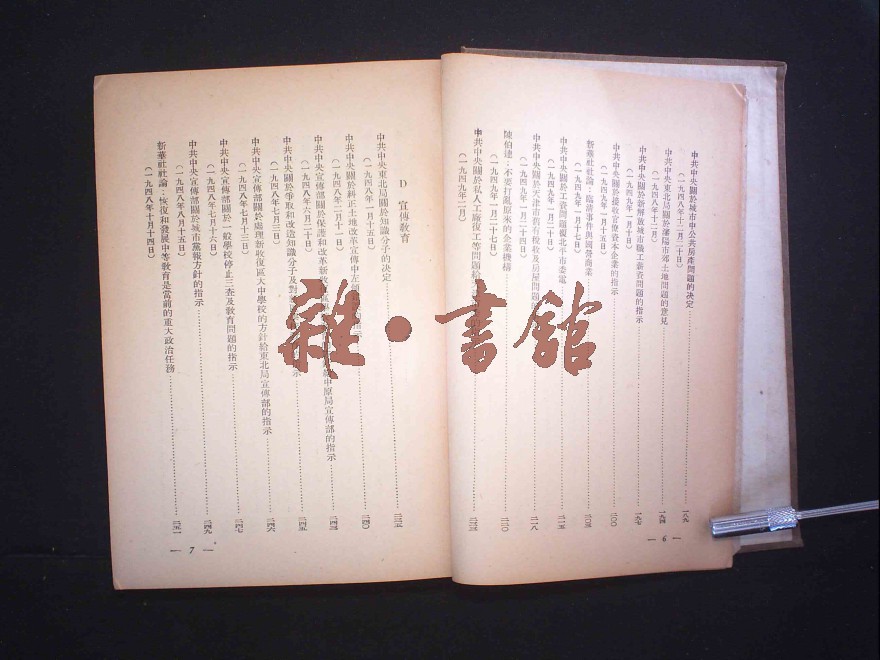 中共中央關於城市中公共房產問題的決定
（一九四八年十二月二十日）……一八九
中共中央東北局關於瀋陽市郊土地問題的意見
（一九四八年十二月）……一九四
中共中央關於新解放城市職工薪資問題的指示
（一九四九年一月）……一九七
中共中央關於接收官僚資本企業的指示
（一九四九年一月十五日）……二〇〇
新華社社論：臨清事件與國營商業
（一九四九年一月十七日）……二〇五
中共中央關於工資問題復北平市委電
（一九四九年一月二十日）……二一五
中共中央關於天津市舊有稅收及房屋問題
（一九四九年一月二十四日）……二一八
陳伯達：不要打亂原來的企業機構
（一九四九年一月二十七日）……二二〇
中共中央關於私人工廠復工等問題給
（一九四九年二月）……二三三
— 6 —
D 宣傳教育
中共中央東北局關於知識分子的決定
（一九四八年一月十五日）……二三五
中共中央關於糾正土地改革宣傳中左傾
（一九四八年二月十一日）……二四〇
中共中央宣傳部關於保護和改革新收復區學
中原局宣傳部的指示
（一九四八年六月二十日）……二四三
中共中央關於爭取和改造知識分子及對
示
（一九四八年七月三日）……二四五
中共中央宣傳部關於處理新收復區大中學校的方針給東北局宣傳部的指示
（一九四八年七月十三日）……二四六
中共中央宣傳部關於一般學校停止三查及教育問題的指示
（一九四八年七月十六日）……二四七
中共中央宣傳部關於城市黨報方針的指示
（一九四八年八月十五日）……二四九
新華社社論：恢復和發展中等教育是當前的重大政治任務
（一九四八年十月十四日）……二五一
— 7 —
雜·書館